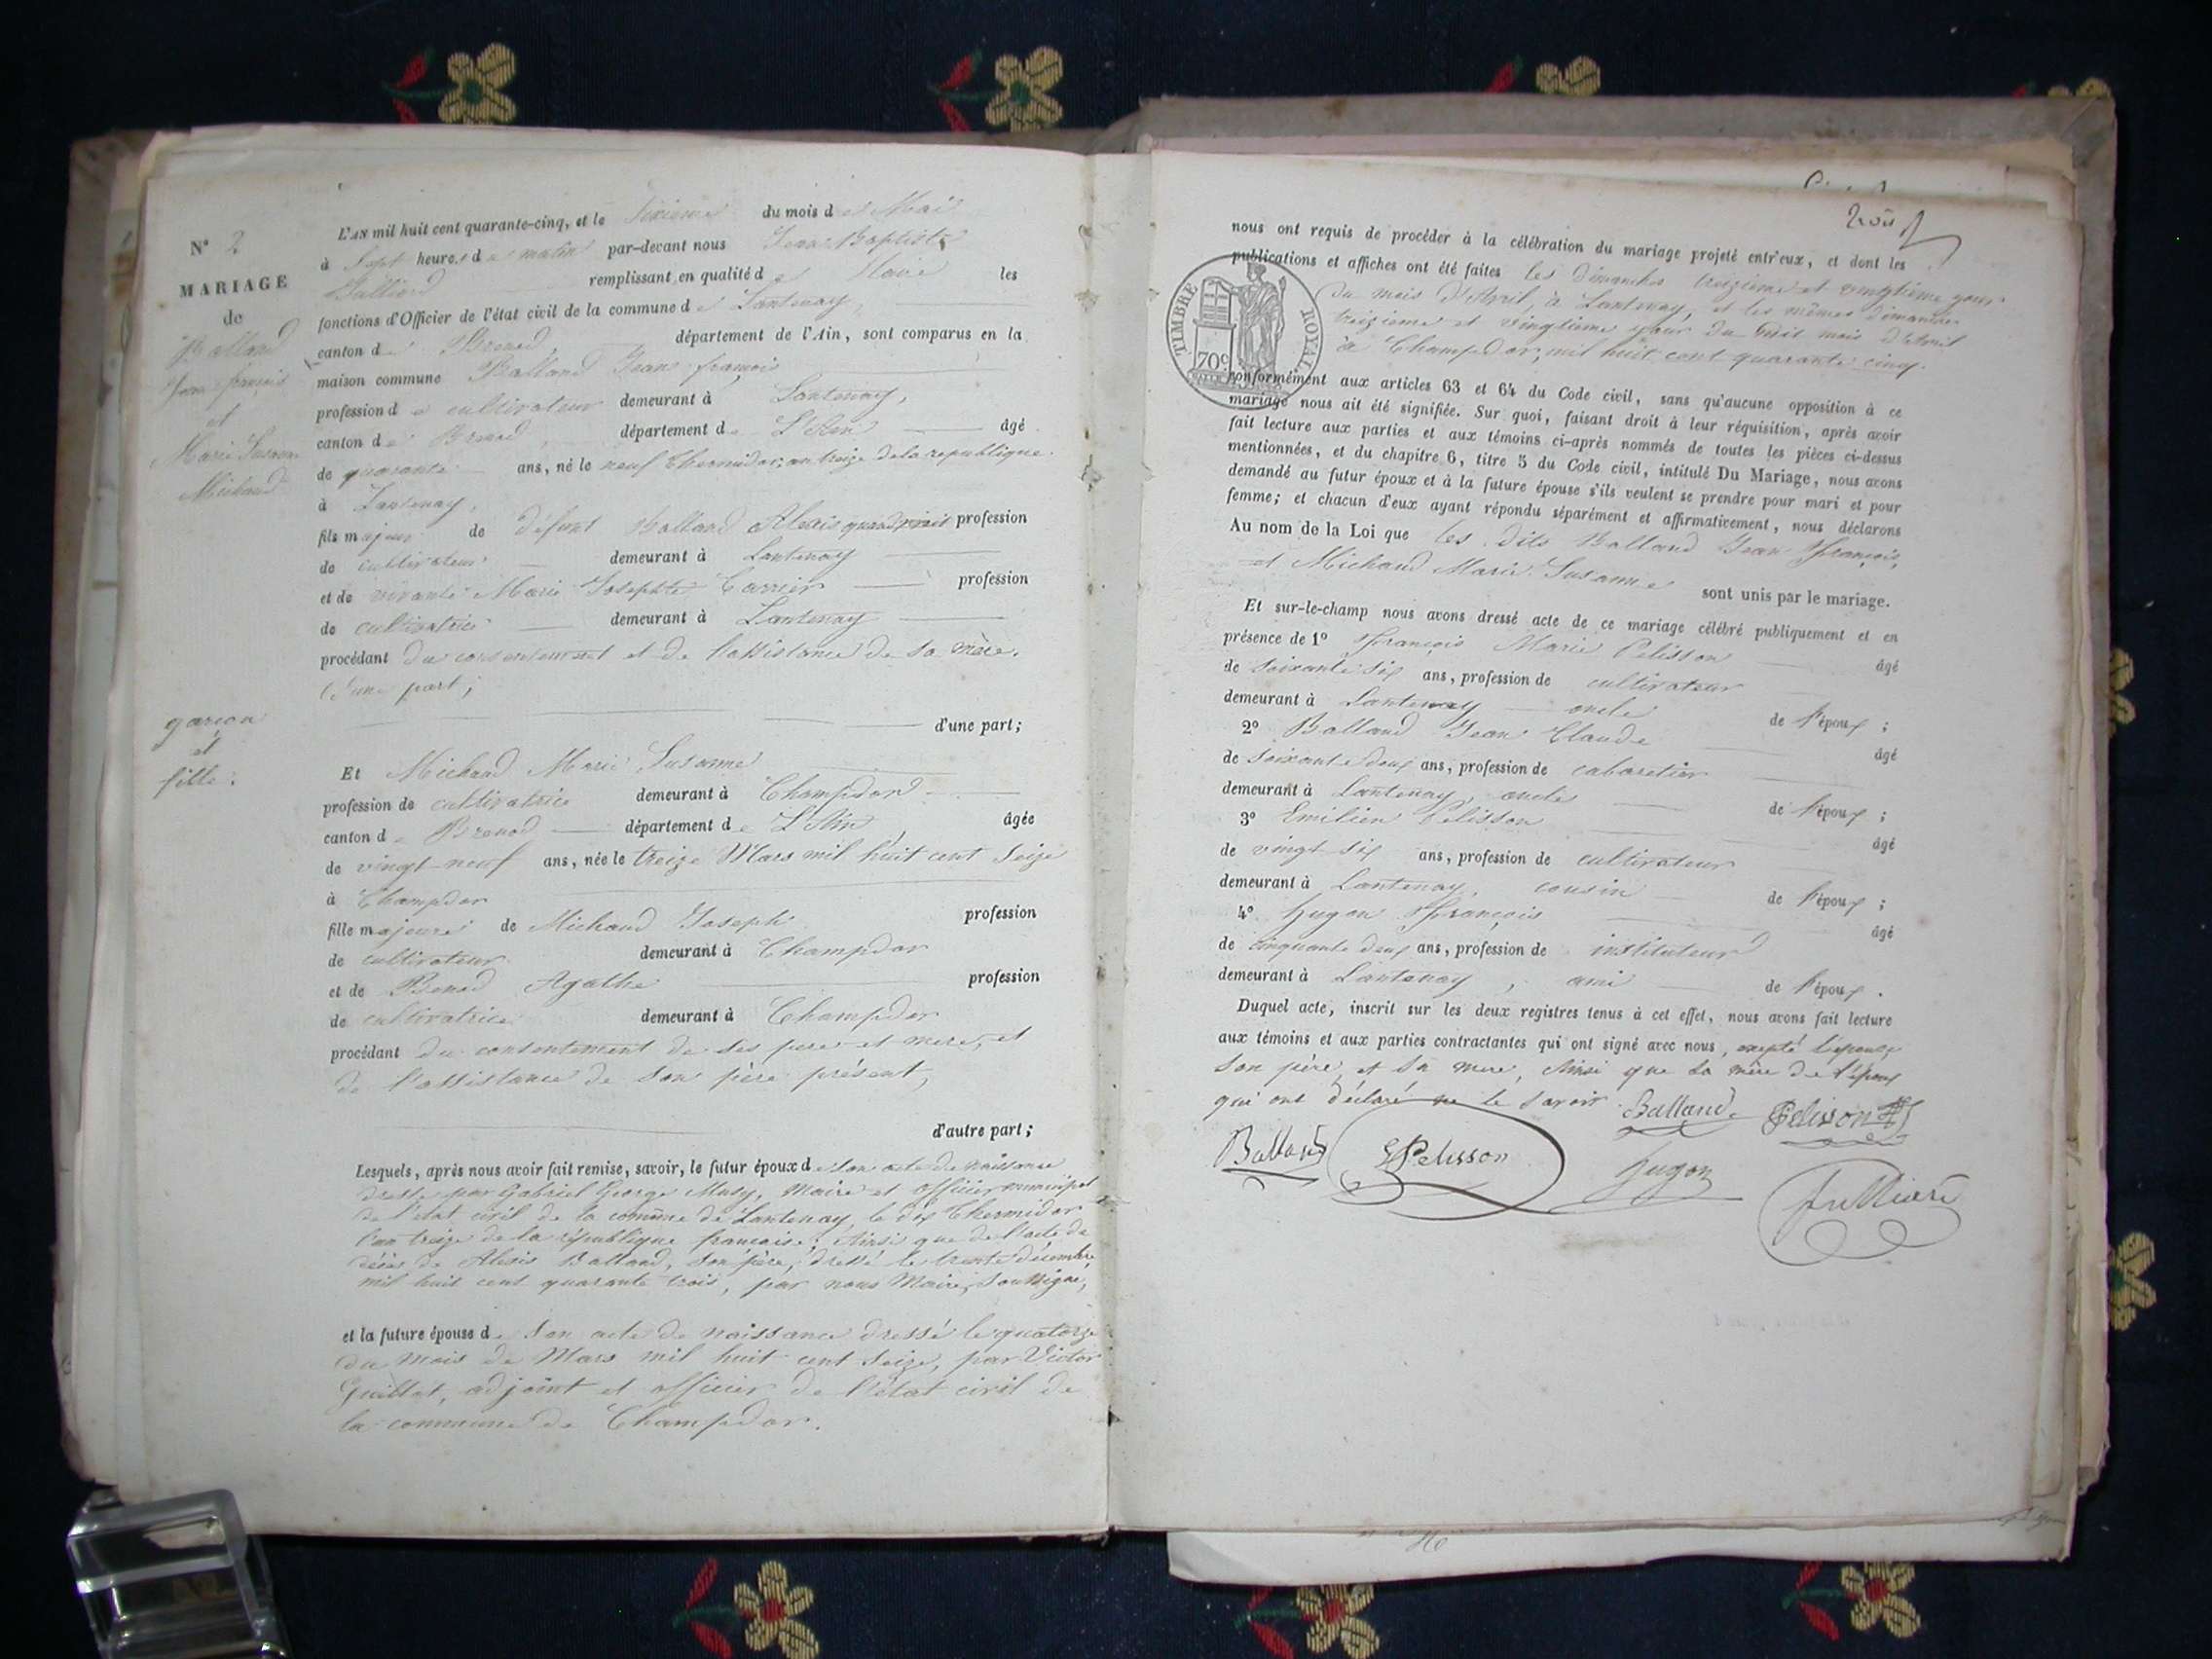 N° 2
MARIAGE
de
Balland
Jean françois
et
Marie Susanne
Michaud
garçon
et
fille.
L'AN mil huit cent quarante-cinq, et le Sixieme du mois de Mai
à Sept heures du matin par-devant nous Jean Baptiste
Jullierd remplissant en qualité de Maire les
fonctions d'Officier de l'état civil de la commune de Lantenay,
canton de Brenod département de l'Ain, sont comparus en la
maison commune Balland Jean françois
profession de cultivateur demeurant à Lantenay,
canton de Brenod, département de L'Ain âgé
de quarante ans, né le neuf thermidor, an treize de la republique.
à Lantenay,
fils majeur de défunt Balland Alexis quand vivait profession
de cultivateur demeurant à Lantenay
et de vivante Marie Josephte Carrier profession
de cultivatrice demeurant à Lantenay
procédant du consentement et de l'assistance de sa mère.
d'une part;
d'une part;
Et Michaud Marie Susanne
profession de cultivatrice demeurant à Champdor
canton de Brenod département de L'Ain, âgée
de vingt-neuf ans, née le treize Mars mil huit cent seize
à Champdor
fille majeure de Michaud Joseph profession
de cultivateur demeurant à Champdor
et de Benod Agathe profession
de cultivatrice demeurant à Champdor
procédant du consentement de ses pere et mere, et
de l'assistance de son père présent,
d'autre part;
Lesquels, après nous avoir fait remise, savoir, le futur époux de son acte de naissance
dressé par Gabriel George Musy, Maire et officier municipal
de l'état civil de la commune de Lantenay, le dix thermidor
l'an treize de la république française; Ainsi que de l'acte de
décès de Alexis Balland, son père, dressé le trente décembre,
mil huit cent quarante trois, par nous Maire, soussigné,
et la future épouse de son acte de naissance dressé le quatorze
du mois de Mars mil huit cent seize, par Victor
Guillot, adjoint et officier de l'état civil de
la commune de Champdor.
trois
nous ont requis de procéder à la célébration du mariage projeté entr'eux, et dont les
publications et affiches ont été faites les Dimanches treizieme et vingtième jour
du mois d'Avril, à Lantenay, et les mêmes dimanches
treizieme et vingtieme jour du susdit mois d'Avril
à Champdor, mil huit cent quarante cinq.
TIMBRE ROYAL
70c.
conformément aux articles 63 et 64 du Code civil, sans qu'aucune opposition à ce
mariage nous ait été signifiée. Sur quoi, faisant droit à leur réquisition, après avoir
fait lecture aux parties et aux témoins ci-après nommés de toutes les pièces ci-dessus
mentionnées, et du chapitre 6, titre 5 du Code civil, intitulé Du Mariage, nous avons
demandé au futur époux et à la future épouse s'ils veulent se prendre pour mari et pour
femme; et chacun d'eux ayant répondu séparément et affirmativement, nous déclarons
Au nom de la Loi que les dits Balland Jean François,
et Michaud Marie Susanne sont unis par le mariage.
Et sur-le-champ nous avons dressé acte de ce mariage célébré publiquement et en
présence de 1° François Marie Pelisson âgé
de soixante six ans, profession de cultivateur
demeurant à Lantenay oncle de l'époux;
2° Balland Jean Claude âgé
de soixante deux ans, profession de cabaretier
demeurant à Lantenay, oncle de l'époux;
3° Emilien Pelisson âgé
de vingt six ans, profession de cultivateur
demeurant à Lantenay, cousin de l'époux;
4° Hugon François âgé
de cinquante deux ans, profession de instituteur
demeurant à Lantenay, ami de l'époux.
Duquel acte, inscrit sur les deux registres tenus à cet effet, nous avons fait lecture
aux témoins et aux parties contractantes qui ont signé avec nous, excepté l'épouse
son père, et sa mere, Ainsi que la mère de l'époux
qui ont déclaré ne le savoir. Balland Pelisson
Balland E Pelisson Hugon Jullierd